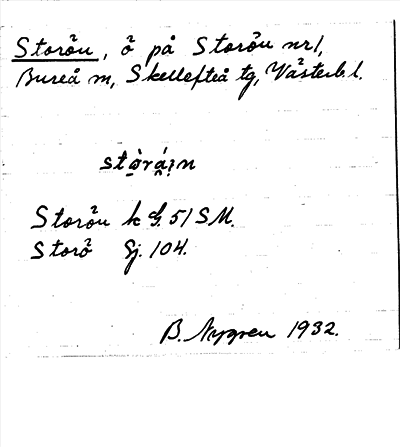 Storön, ö på Storön nr 1,
Bureå m, Skellefteå tg, Västerb. l.
stò̱rá̱i̯n
Storön k 51 SM.
Storö Gj. 104.
B. Nygren 1932.